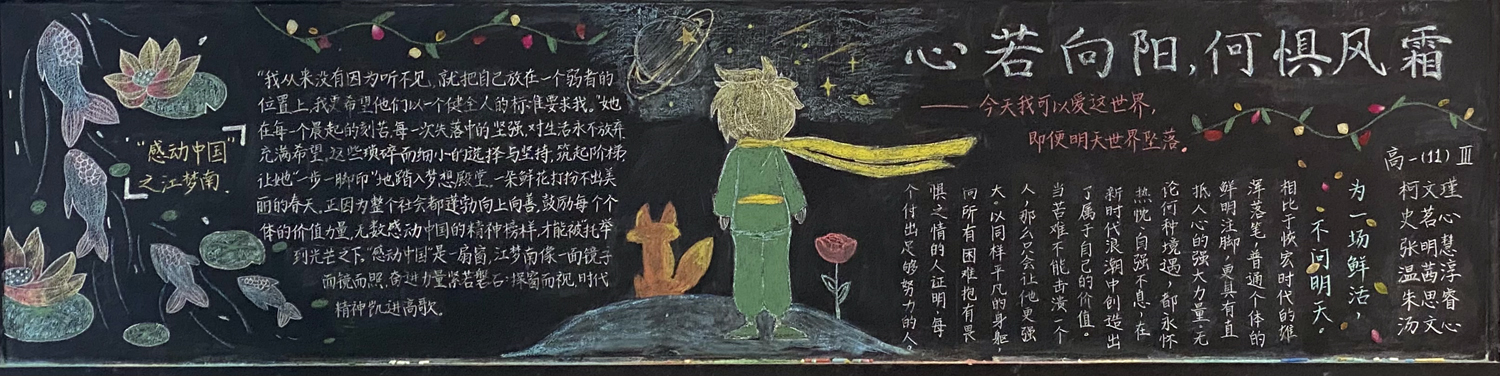 "感动中国"
之江梦南.
"我从来没有因为听不见,就把自己放在一个弱者的
位置上,我更希望他们以一个健全人的标准要求我。"她
在每一个晨起的刻苦,每一次失落中的坚强,对生活永不放弃
充满希望,这些琐碎而细小的选择与坚持,筑起阶梯
让她"一步一脚印"地踏入梦想殿堂。一朵鲜花打扮不出美
丽的春天,正因为整个社会都蓬勃向上向善,鼓励每个个
体的价值力量,无数感动中国的精神榜样,才能被托举
到光芒之下。"感动中国"是一扇窗,江梦南像一面镜子
而镜而照,奋进力量紧若磐石;探窗而视,时代
精神凯进高歌。
心若向阳,何惧风霜
——今天我可以爱这世界,
即便明天世界坠落。
高一(11) Ⅲ
柯文瑾
史茗心
张明慧
温茜淳
朱思睿
汤文心
为一场鲜活,
不问明天。
相比于恢宏时代的雄
浑落笔,普通个体的
鲜明注脚,更具有直
抵人心的强大力量。无
论何种境遇,都永怀
热忱、自强不息,在
新时代浪潮中创造出
了属于自己的价值。
当苦难不能击溃一个
人,那么只会让他更强
大。以同样平凡的身躯,
向所有困难抱有畏
惧之情的人证明,每
个付出足够努力的人。